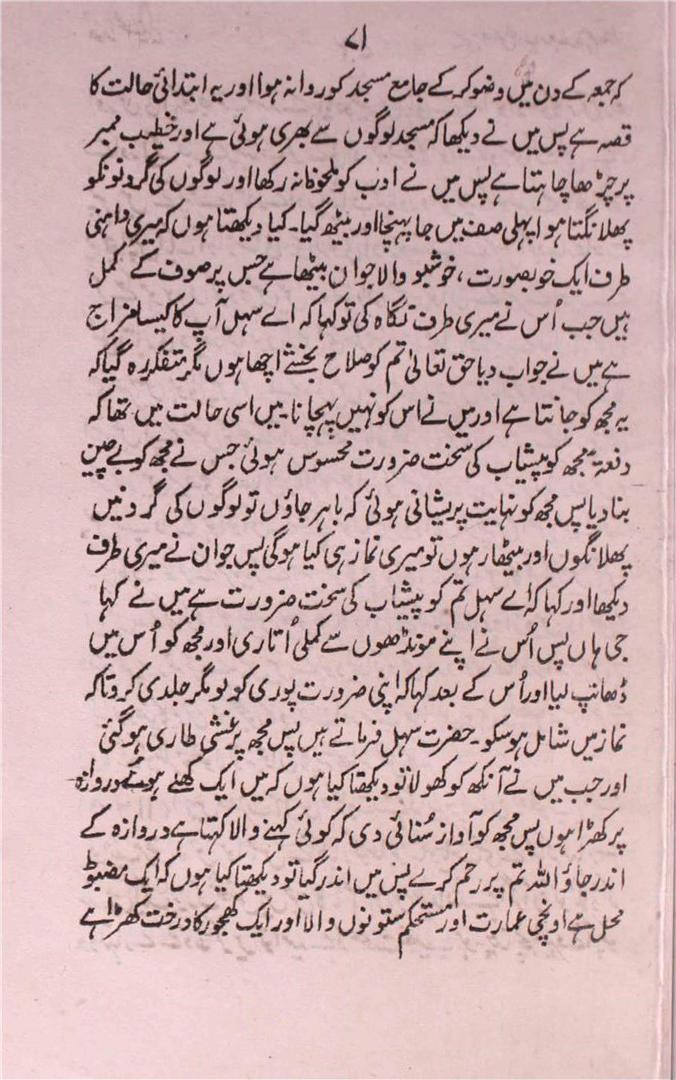 ۷۱
کہ جمعہ کے دن میں وضو کر کے جامع مسجد کو روانہ ہوا اور یہ ابتدائی حالت کا
قصہ ہے پس میں نے دیکھا کہ مسجد لوگوں سے بھری ہوئی ہے اور خطیب ممبر
پر چڑھا چاہتا ہے پس میں نے ادب کو ملحوظ نہ رکھا اور لوگوں کی گردنونکو
پھلانگتا ہوا پہلی صف میں جا پہنچا اور بیٹھ گیا۔ کیا دیکھتا ہوں کہ میری داہنی
طرف ایک خوبصورت، خوشبو والا جوان بیٹھا ہے جس پر صوف کے کمل
ہیں جب اُس نے میری طرف نگاہ کی تو کہا کہ اے سہل آپ کا کیسا مزاج
ہے میں نے جواب دیا حق تعالیٰ تم کو صلاح بخشے اچھا ہوں مگر متفکر رہ گیا کہ
یہ مجھ کو جانتا ہے اور میں نے اس کو نہیں پہچانا۔ میں اسی حالت میں تھا کہ
دفعۃً مجھ کو پیشاب کی سخت ضرورت محسوس ہوئی جس نے مجھ کو بے چین
بنا دیا پس مجھ کو نہایت پریشانی ہوئی کہ باہر جاؤں تو لوگوں کی گردنیں
پھلانگوں اور بیٹھا رہوں تو میری نماز ہی کیا ہوگی پس جوان نے میری طرف
دیکھا اور کہا کہ اے سہل تم کو پیشاب کی سخت ضرورت ہے میں نے کہا
جی ہاں پس اُس نے اپنے مونڈھوں سے کملی اُتاری اور مجھ کو اُس میں
ڈھانپ لیا اور اُس کے بعد کہا کہ اپنی ضرورت پوری کو لو مگر جلدی کرو تاکہ
نماز میں شامل ہو سکو۔ حضرت سہل فرماتے ہیں پس مجھ پر غشی طاری ہوگئی
اور جب میں نے آنکھ کو کھولا تو دیکھتا کیا ہوں کہ میں ایک کھلے ہوئے دروازہ
پر کھڑا ہوں پس مجھ کو آواز سُنائی دی کہ کوئی کہنے والا کہتا ہے دروازہ کے
اندر جاؤ اللہ تم پر رحم کرے پس میں اندر گیا تو دیکھتا کیا ہوں کہ ایک مضبوط
محل ہے اونچی عمارت اور مستحکم ستونوں والا اور ایک کھجور کا درخت کھڑا ہے